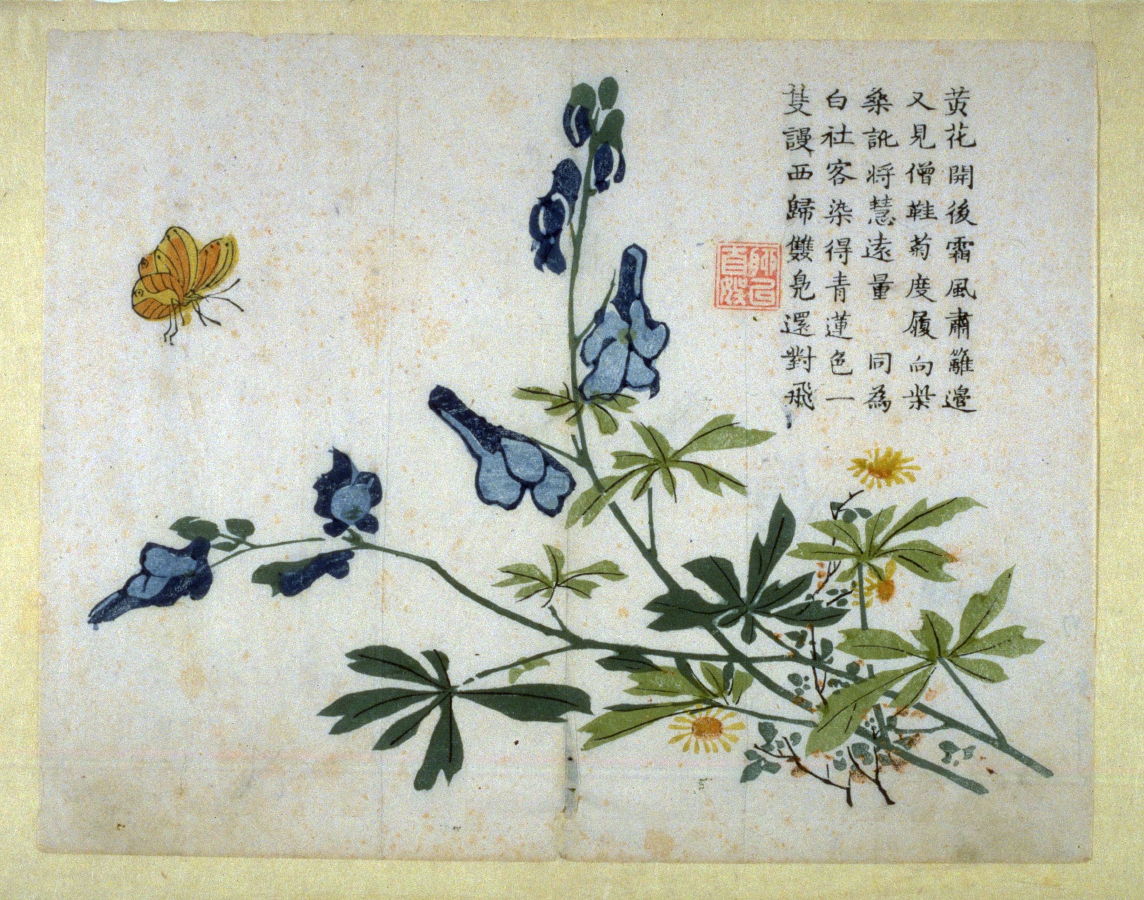 黄花開後霜風肅籬邉
又見僧鞋菊度履向柴
桑訊将慧遠量 同為
白社客染得青蓮色一
隻謾西歸雙凫還對飛